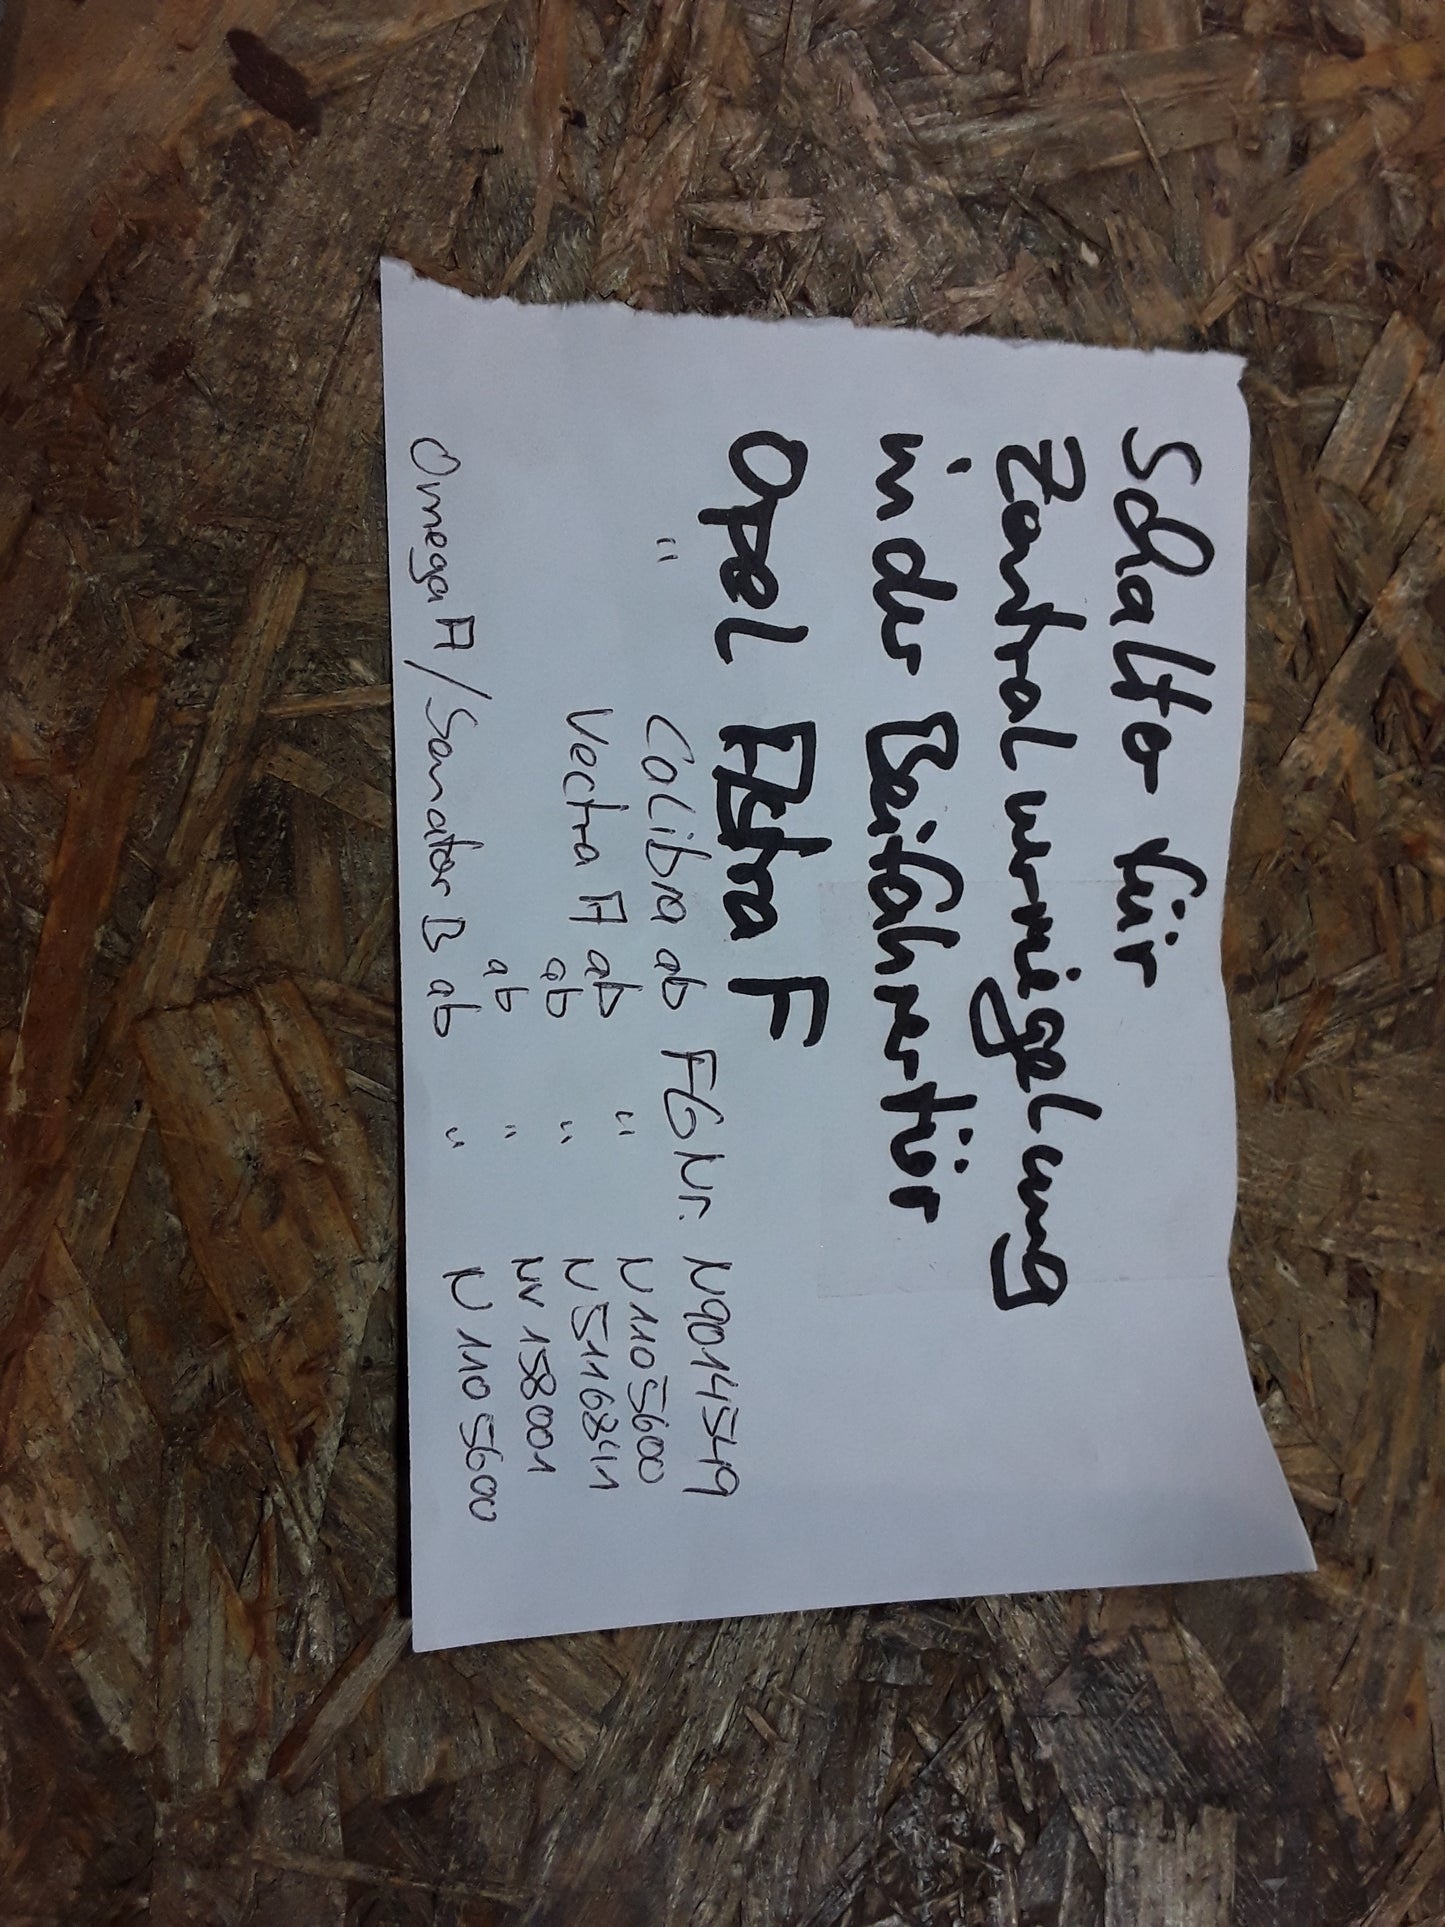 Schalter für
Zentralverriegelung
in der Beifahrertür
Opel Astra F
" Calibra ab FGNr. N9014549
Vectra A ab " N1105600
ab " N5116841
ab " NV158001
Omega A/Senator B ab " N1105600